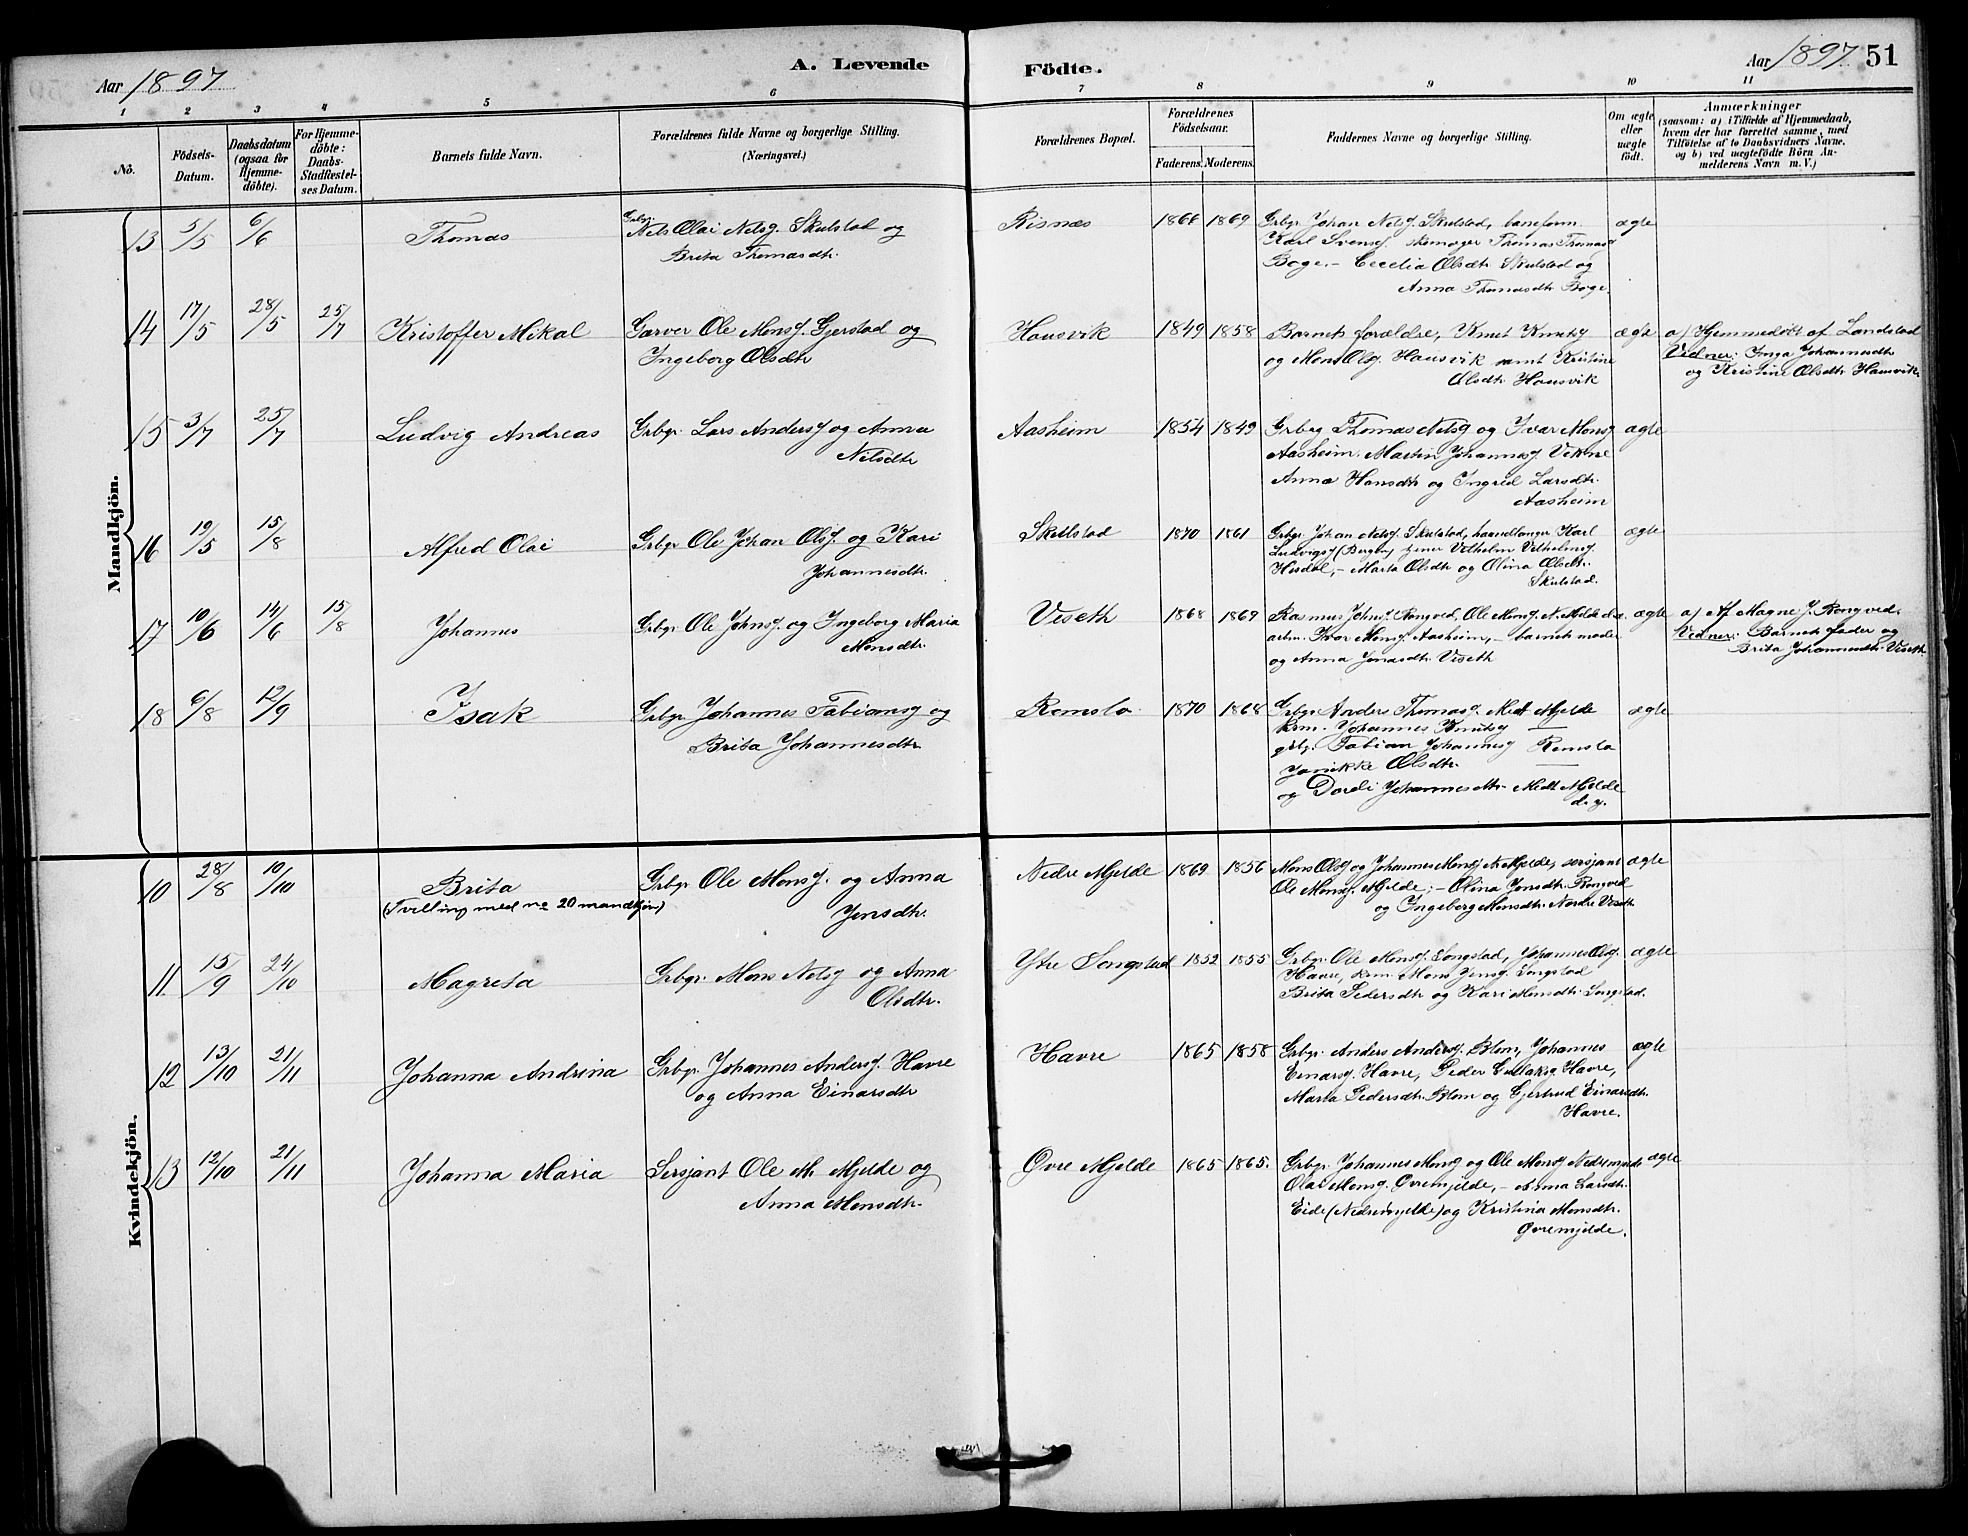 Aar 1897
A. Levende
Födte.
Aar 1897 51
1 2 3 4 5 6 7 8 9 10 11
No.
Födsels-
Datum.
Daabsdatum
(ogsaa for
Hjemme-
döbte).
For Hjemme-
döbte:
Daabs-
Stadfæstel-
ses Datum.
Barnets fulde Navn.
Forældrenes fulde Navne og borgerlige Stilling.
(Næringsvei.)
Forældrenes Bopæl.
Forældrenes
Födselsaar.
Faderens. Moderens.
Faddernes Navne og borgerlige Stilling.
Om ægte
eller
uægte
födt.
Anmærkninger
(saasom: a) i Tilfælde af Hjemmedaab,
hvem der har forrettet samme, med
Tilföielse af to Daabsvidners Navne,
og b) ved uægtefödte Börn An-
melderens Navn m. V.)
Mandkjön.
13 5/5 6/6 Thomas
Grbgr.
Nels Olai Nelsg. Skulstad og
Brita Thomasdtr.
Risnæs 1866 1869
Grbgr. Johan Nelsg. Skulstad, baneform.
Karl Svensg. skomager Thomas Thomasg
Boge. – Cecelia Olsdtr. Skulstad og
Anna Thomasdtr. Boge.
ægte
14 17/5 28/5 25/7 Kristoffer Mikal
Garver Ole Monsg. Gjerstad og
Ingeborg Olsdtr
Hausvik 1849 1858
Barnets forældre, Knut Knutsg
og Mons Olsg. Hausvik samt Kristine
Olsdtr. Hausvik
ægte
a) Hjemmedöbt af Landstad
Vidner: Inga Johannesdtr
og Kristine Olsdtr. Hausvik.
15 3/7 25/7 Ludvig Andreas
Grbgr. Lars Andersg og Anna
Nelsdtr
Aasheim 1854 1849
Grbgr Thomas Nelsg og Ivar Monsg
Aasheim. Martin Johannesg. Vikne
Anna Hansdtr og Ingred Larsdtr.
Aasheim
ægte
16 19/5 15/8 Alfred Olai
Grbgr Ole Johan Olsg. og Kari
Johannesdtr.
Skulstad 1870 1861
Grbgr Johan Nelsg. Skulstad, haandlanger Karl
Ludvigsg (Bergen) tjener Vilhelm Vilhelmsg.
Hisdal, – Marta Olsdtr og Olina Olsdtr.
Skulstad.
ægte
17 10/6 14/6 15/8 Johannes
Grbgr. Ole Johnsg. og Ingeborg Maria
Monsdtr.
Viseth 1868 1869
Rasmus Johnsg. Rongved, Ole Monsg. N. Mjelde d.æ.
arbm. Ivar Monsg. Aasheim, – barnets moder
og Anna Jonasdtr. Viseth
ægte
a) Af Magne J. Rongved.
Vidner: Barnets fader og
Brita Johannesdtr. Viseth.
18 6/8 12/9 Isak
Grbgr. Johannes Fabiansg og
Brita Johannesdtr.
Romslo 1870 1868
Grbgr Anders Thomasg. Midt Mjelde
krm. Johannes Knutsg
grbgr. Fabian Johannesg Romslo
Jorikke Olsdtr.
og Dordi Johannesdtr. Midt Mjelde
d. y.
ægte
Kvindekjön.
10 28/8 10/10 Brita
(Tvilling med no 20 mandkjøn)
Grbgr Ole Monsg. og Anna
Jensdtr.
Nedre Mjelde 1869 1856
Mons Olsg og Johannes Monsg N. Mjelde, sersjant
Ole Monsg. Mjelde; – Olina Jonsdtr. Rongved
og Ingeborg Monsdtr. Nordre Viseth
ægte
11 15/9 24/10 Magreta
Grbgr. Mons Nelsg og Anna
Olsdtr.
Ytre Songstad 1852 1855
Grbgr. Ole Monsg. Songstad, Johannes Olsg.
Havre, krm. Mons Jensg. Songstad
Brita Pedersdtr og Kari Monsdtr. Songstad.
ægte
12 13/10 21/11 Johanna Andrina
Grbgr. Johannes Andersg. Havre
og Anna Einarsdtr
Havre 1865 1858
Grbgr. Anders Andersg. Blom, Johannes
Einarsg. Havre, Peder Havre,
Marta Pedersdtr. Blom og Gjertrud Einarsdtr.
Havre.
ægte
13 12/10 21/11 Johanna Maria
Sersjant Ole M. Mjelde og
Anna Monsdtr.
Øvre Mjelde 1865 1865.
Grbgr. Johannes Monsg og Ole Monsg Nedremjelde
Olai Monsg. Øvremjelde, – Anna Larsdtr.
Eide (Nedremjelde) og Kristina Monsdtr.
Øvremjelde.
ægte